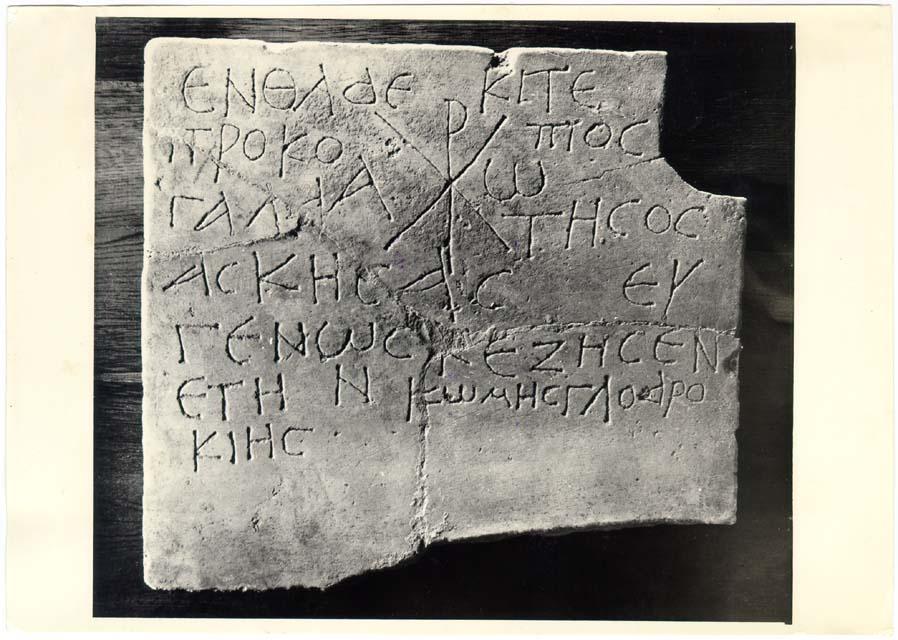 ΕΝΘΑΔΕ ΚΙΤΕ
ΠΡΟΚΟ ☧ ΠΙΟC
ΓΑΛΑ Α Ω ΤΗCΟC
ΑCΚΗCΑC ΕΥ
ΓΕΝΩC ΚΕΖΗCΕΝ
ΕΤΗ Ν ΚΩΜΗCΓΛΟΔΡΟ
ΚΙΗC